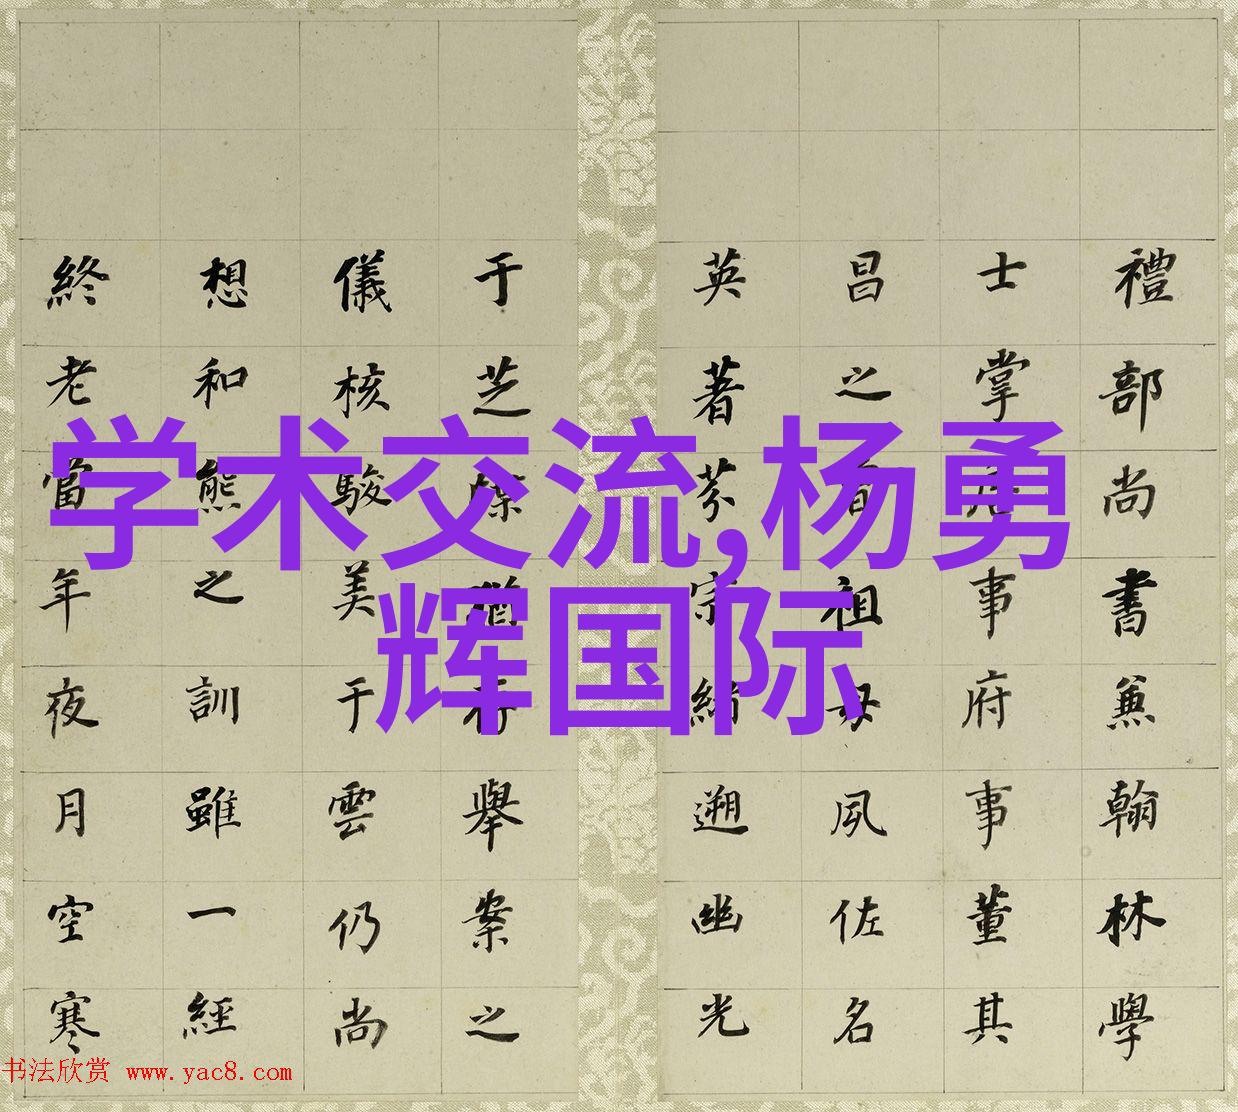 学术交流,杨勇
辉国际
禮部尚書兼翰林學
士掌事府事董其
昌之祖母夙佐名
英著芬宗緒遡幽光
于芝舉案之
儀核駿美于雲仍尚
想和熊之訓雖一經
終老當年夜月空寒
书法欣赏 www.yac8.com